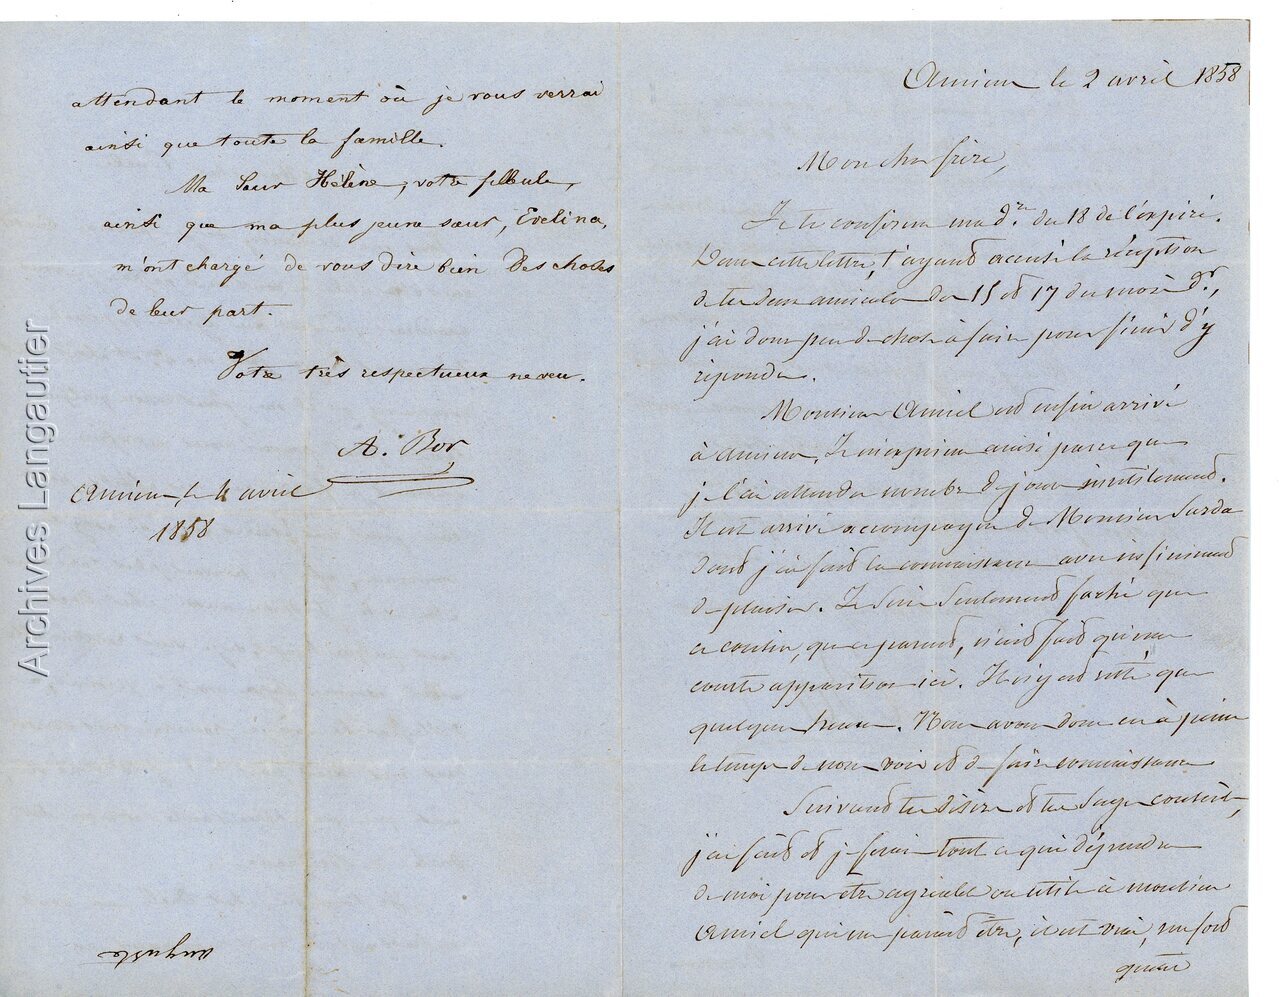 attendant le moment où je vous verrai
ainsi que toute la famille.
Ma Sœur Hélène, votre filleule,
ainsi que ma plus jeune sœur, Evelina,
m'ont chargé de vous dire bien des choses
de leur part.
Votre très respectueux neveu.
A. Bor
Amiens, le 4 avril
1858
auguste
Amiens le 2 avril 1858
Mon cher frère,
Je te confirme ma dre du 18 de l'expiré.
Dans cette lettre, t'ayant accusé la réception
de tes deux amicales des 15 et 17 du mois dr,
j'ai donc peu de chose à faire pour finir d'y
répondre.
Monsieur Amiel est enfin arrivé
à Amiens. Je m'exprime ainsi parce que
je l'ai attendu nombre de jours inutilement.
Il est arrivé accompagné de Monsieur Sarda
dont j'ai fait la connaissance avec infiniment
de plaisir. Je suis seulement fâché que
ce cousin, que ce parent, n'ait fait qu'une
courte apparition ici. Il n'y est resté que
quelques heures. Nous avons donc eu à peine
le temps de nous voir et de faire connaissance
Suivant tes désirs et tes sages conseils,
j'ai fait et je ferai tout ce qui dépendra
de moi pour être agréable ou utile à monsieur
Amiel qui me paraît être, il est vrai, un fort
Archives Langautier